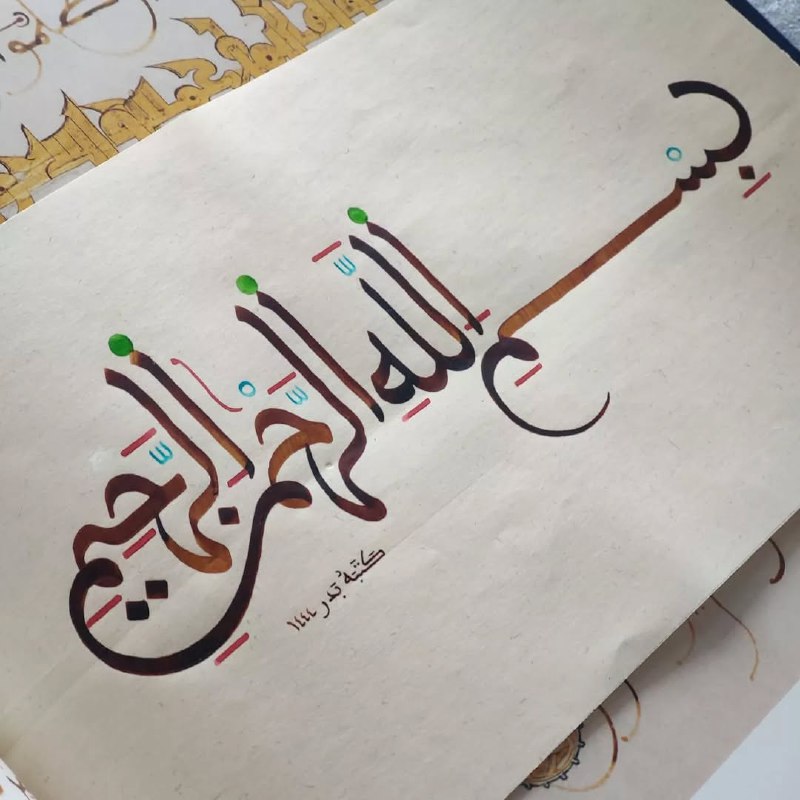 بِسْمِ اللَّهِ الرَّحْمٰنِ الرَّحِيمِ
كتبهُ بدر ١٤٤٤